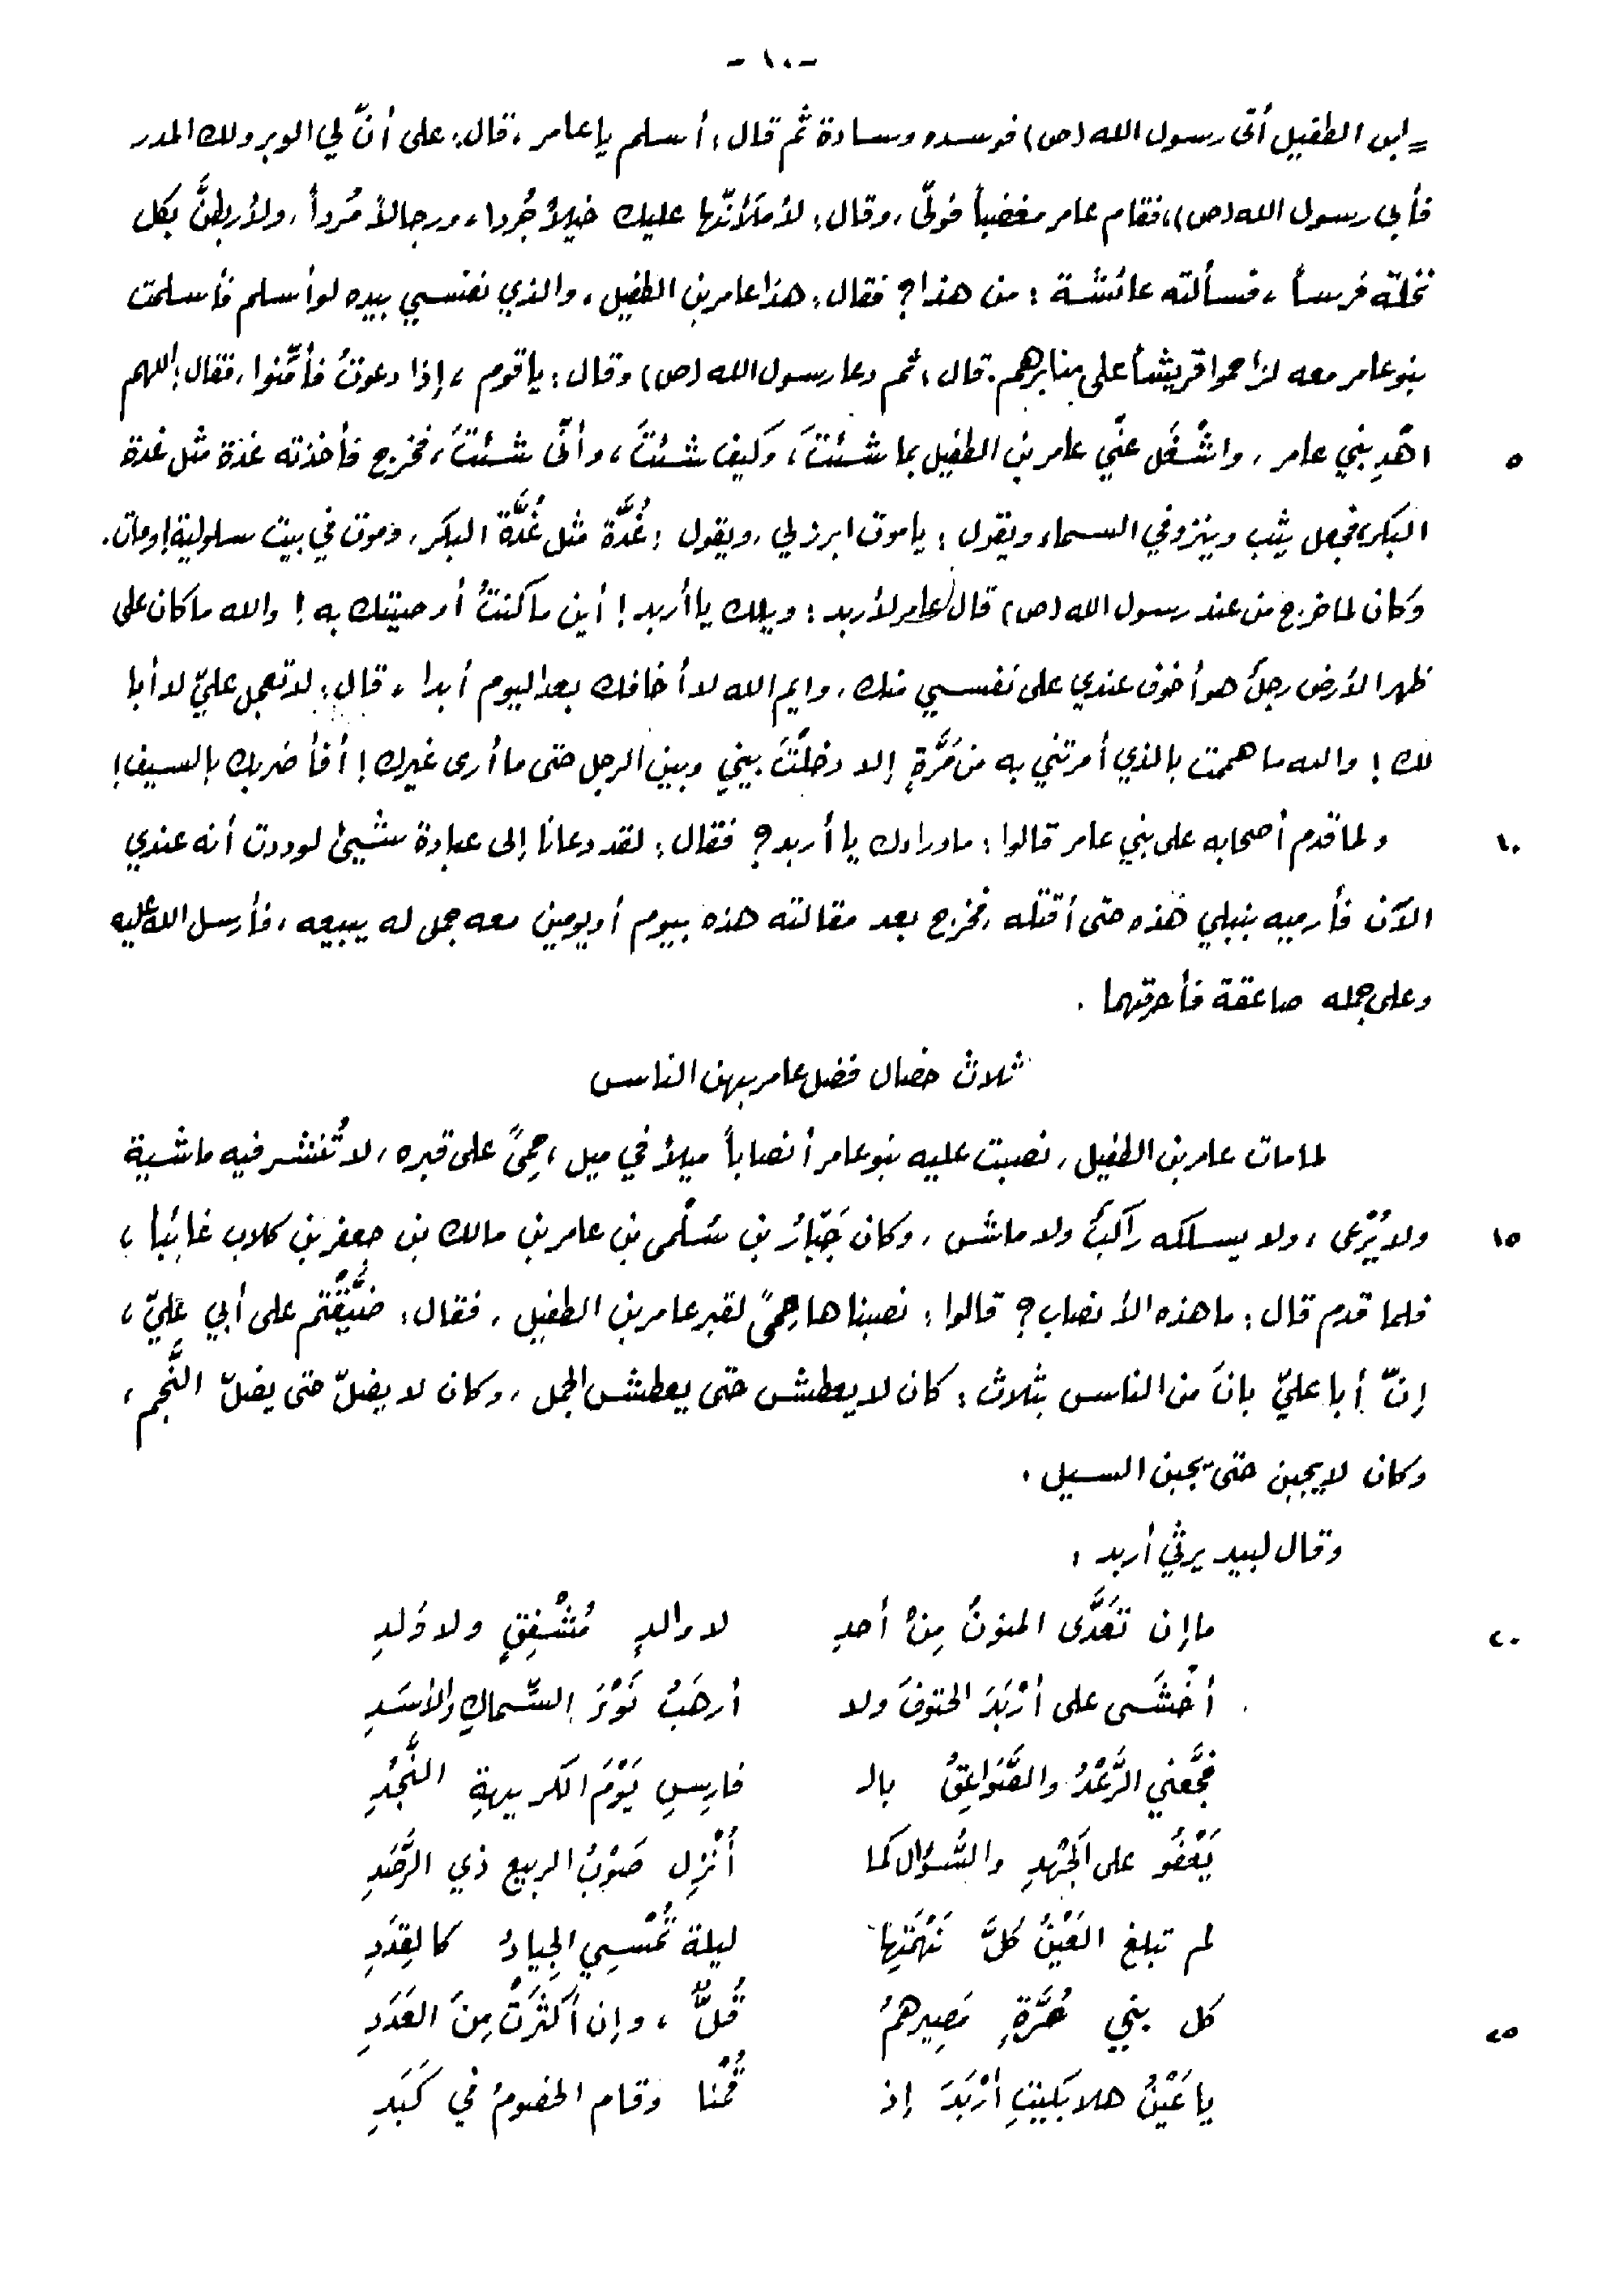 -١٠-
= ابن الطفيل أتى رسول الله (ص) فوسده وسادة ثم قال: أسلم يا عامر، قال: على أنّ لي الوبر ولك المدر
فأبى رسول الله (ص)، فقام عامر مغضباً فولّى، وقال: لأملأنّها عليك خيلاً جُردا، ورجالاً مُرداً، ولأربطنَّ بكل
نخلة فرساً، فسألته عائشة: من هذا؟ فقال: هذا عامر بن الطفيل، والذي نفسي بيده لو أسلم فأسلمت
بنو عامر معه لزاحموا قريشاً على منابرهم. قال: ثم دعا رسول الله (ص) وقال: يا قوم، إذا دعوتُ فأمِّنوا، فقال: اللهم
٥ اهْدِ بني عامر، واشْغَل عنّي عامر بن الطفيل بما شئتَ، وكيف شئتَ، وأنّى شئتَ، فخرج فأخذته غدّة مثل غدة
البكر، فجعل يثب وينزو في السماء ويقول: يا موت ابرز لي، ويقول: غُدَّة مثل غُدَّة البكر، وموت في بيت سلولية! ومات.
وكان لما خرج من عند رسول الله (ص) قال عامر لأربد: ويلك يا أربد! أين ما كنتُ أوصيتك به! والله ما كان على
ظهر الأرض رجلٌ هو أخوف عندي على نفسي منك، وايم الله لا أخافك بعد اليوم أبدا، قال: لا تعجل عليّ لا أبا
لك! والله ما هممت بالذي أمرتني به من مَرَّةٍ إلا دخلْتَ بيني وبين الرجل حتى ما أرى غيرك! أفأضربك بالسيف!
١٠ ولما قدم أصحابه على بني عامر قالوا: ما وراءك يا أربد؟ فقال: لقد دعانا إلى عبادة شيئ لوددت أنه عندي
الآن فأرميه بنبلي هذه حتى أقتله، فخرج بعد مقالته هذه بيوم أو يومين معه جمل له يبيعه، فأرسل الله عليه
وعلى جمله صاعقة فأحرقتهما.
ثلاث خصال فضل عامر بهن الناس
لما مات عامر بن الطفيل، نصبت عليه بنو عامر أنصاباً ميلاً في ميل، حِمىً على قبره، لا تُنْشر فيه ماشية
١٥ ولا يُرْعى، ولا يسلكه راكبٌ ولا ماشٍ، وكان جَبّارُ بن سَلْمى بن عامر بن مالك بن جعفر بن كلاب غائبا،
فلما قدم قال: ما هذه الأنصاب؟ قالوا: نصبناها حِمىً لقبر عامر بن الطفيل، فقال: ضَيَّقْتُم على أبي عليّ،
إنّ أبا عليّ بانَ من الناس بثلاث: كان لا يعطش حتى يعطش الجمل، وكان لا يضلّ حتى يضلّ النَّجم،
وكان لا يجبن حتى يجبن السيل.
وقال لبيد يرثي أربد:
٢٠ ما إن تَعَدَّى المنونُ مِنْ أحدِ لا والدٍ مُشْفِقٍ ولا وَلدِ
أخْشَى على أرْبَدَ الحتوفَ ولا أرهَبُ نَوْءَ السِّماكِ والأسَدِ
فجَّعني الرَّعْدُ والصَّوَاعِقُ بالـ فارِسِ يَوْمَ الكريهةِ النَّجُدِ
يَعْفُو على الجَهْدِ والسُّؤال كما أُنْزِل صَوْبُ الربيع ذي الرَّصَدِ
لم تبلغ العَيْنُ كلَّ نَهْمَتِها ليلة تُمْسِي الجِيادُ كالقِدَدِ
كل بني حُرَّةٍ مَصِيرهمُ قُلٌّ، وإن أكثَرَتْ مِنَ العَدَدِ
٢٥ يا عَيْنُ هلا بَكَيْتِ أرْبَدَ إذ قُمْنا وقام الخصومُ في كَبَدِ